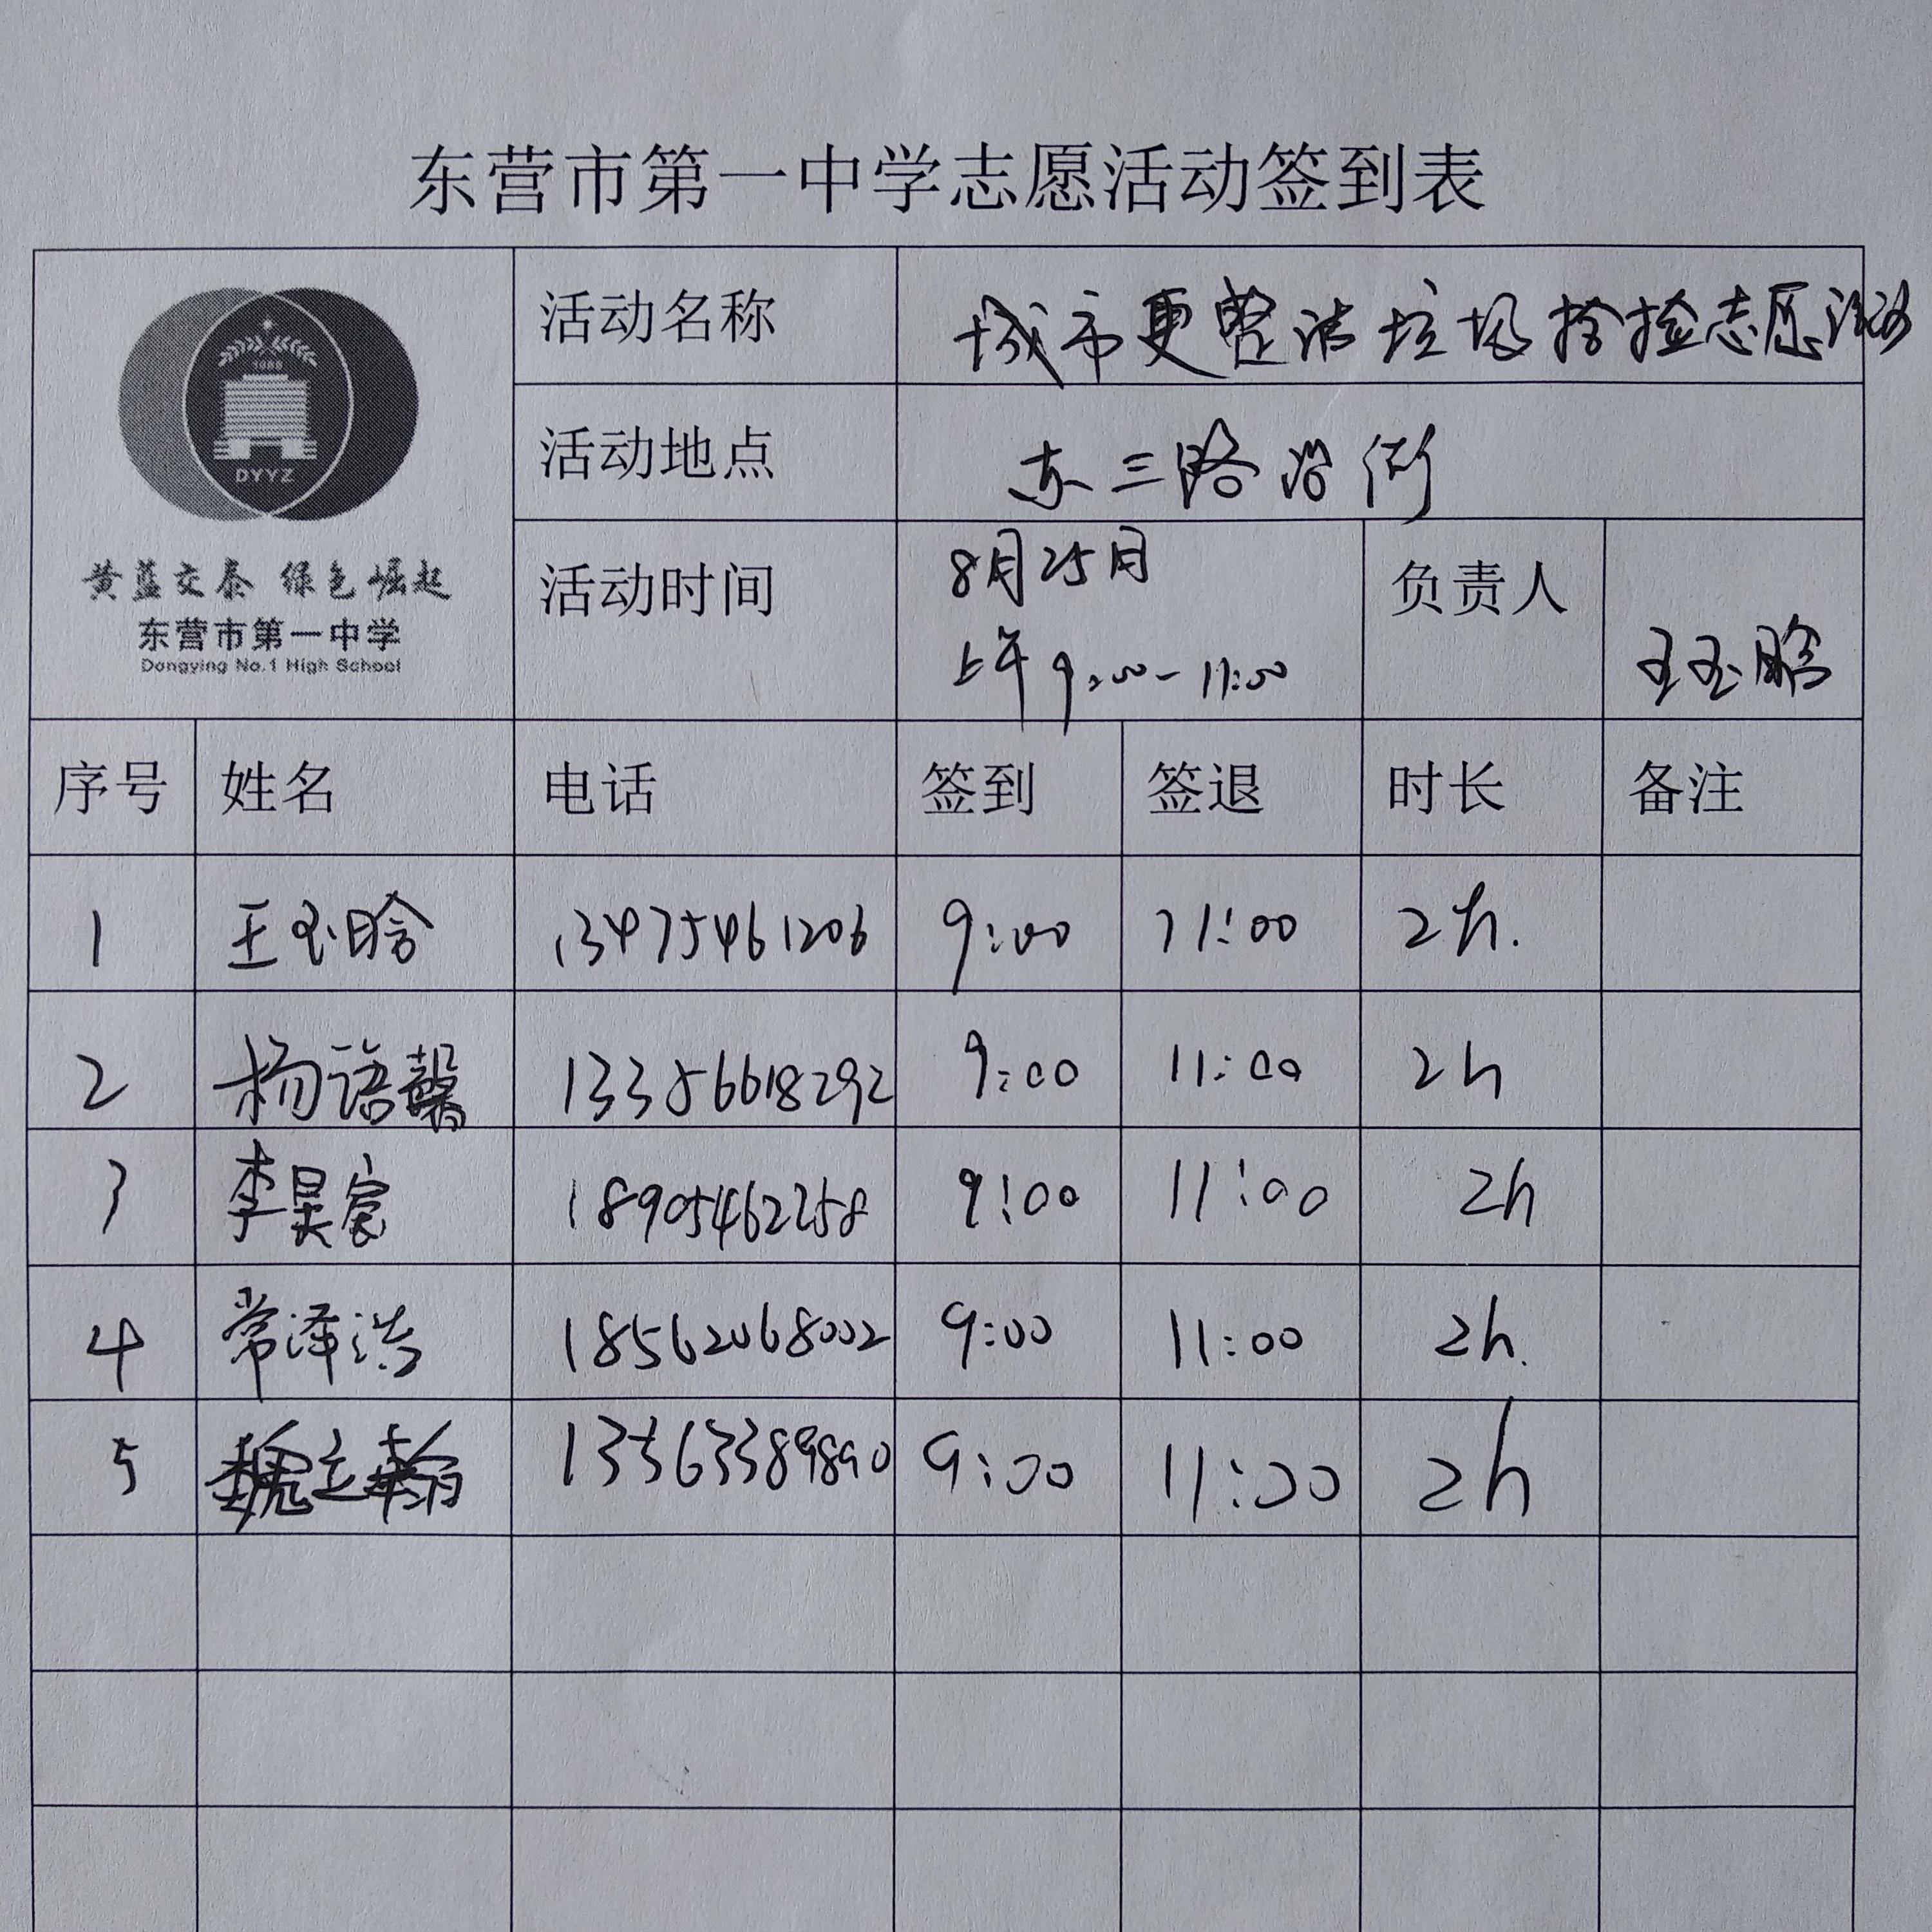 东营市第一中学志愿活动签到表
1988
DYYZ
黄蓝交泰 绿色崛起
东营市第一中学
Dongying No.1 High School
活动名称 城市更整洁垃圾拾捡志愿活动
活动地点 东三路沿街
活动时间 8月25日
上午9:00-11:00
负责人 王玉晗
序号 姓名 电话 签到 签退 时长 备注
1 王玉晗 13475461206 9:00 11:00 2h.
2 杨语馨 13356618292 9:00 11:00 2h
3 李昊宸 18905462258 9:00 11:00 2h
4 常泽浩 18562068002 9:00 11:00 2h.
5 魏立翰 13563389890 9:00 11:00 2h